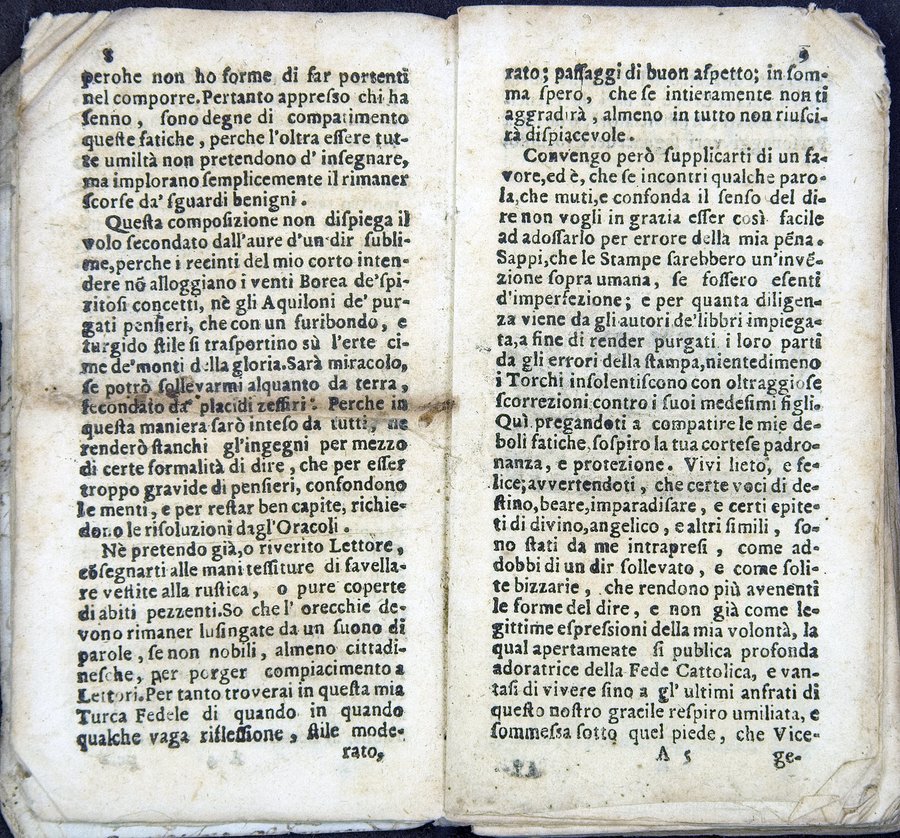 8
perohe non ho forme di far portenti
nel comporre.Pertanto appresso chi ha
ſenno , ſono degne di compatimento
queſte fatiche , perche l'oltra eſſere tut-
te umiltà non pretendono d' inſegnare,
ma implorano ſemplicemente il rimaner
ſcorſe da' ſguardi benigni .
Queſta compoſizione non diſpiega il
volo ſecondato dall'aure d'un dir ſubli-
me,perche i recinti del mio corto inten-
dere nõ alloggiano i venti Borea de'ſpi-
ritoſi concetti, nè gli Aquiloni de' pur-
gati penſieri, che con un furibondo, e
turgido ſtile ſi traſportino sù l'erte ci-
me de'monti della gloria.Sarà miracolo,
ſe potrò ſollevarmi alquanto da terra ,
ſecondato da' placidi zeffiri . Perche in
queſta maniera ſarò inteſo da tutti, ne
renderò ſtanchi gl'ingegni per mezzo
di certe formalità di dire , che per eſſer
troppo gravide di penſieri, confondono
le menti, e per reſtar ben capite, richie-
dono le riſoluzioni dagl'Oracoli .
Nè pretendo già,o riverito Lettore ,
coſegnarti alle mani teſſiture di favella-
re veſtite alla ruſtica , o pure coperte
di abiti pezzenti.So che l' orecchie de-
vono rimaner luſingate da un ſuono di
parole , ſe non nobili , almeno cittadi-
neſche, per porger compiacimento a
Lettori.Per tanto troverai in queſta mia
Turca Fedele di quando in quando
qualche vaga rifleſſione , ſtile mode-
rato,
9
rato ; paſſaggi di buon aſpetto; in ſom-
ma ſpero , che ſe intieramente non ti
aggradirà , almeno in tutto non riuſci-
rà diſpiacevole .
Convengo però ſupplicarti di un fa-
vore,ed è, che ſe incontri qualche paro-
la,che muti,e confonda il ſenſo del di-
re non vogli in grazia eſſer così facile
ad adoſſarlo per errore della mia pẽna.
Sappi,che le Stampe ſarebbero un'invẽ-
zione ſopra umana, ſe foſſero eſenti
d'imperfezione ; e per quanta diligen-
za viene da gli autori de'libbri impiega-
ta,a fine di render purgati i loro parti
da gli errori della ſtampa,nientedimeno
i Torchi inſolentiſcono con oltraggioſe
ſcorrezioni contro i ſuoi medeſimi figli.
Quì pregandoti a compatire le mie de-
boli fatiche,ſoſpiro la tua corteſe padro-
nanza, e protezione . Vivi lieto, e fe-
lice;avvertendoti , che certe voci di de-
ſtino,beare,imparadiſare , e certi epite-
ti di divino,angelico , e altri ſimili , ſo-
no ſtati da me intrapreſi , come ad-
dobbi di un dir ſollevato , e come ſoli-
te bizzarie , che rendono più avenenti
le forme del dire , e non già come le-
gittime eſpreſſioni della mia volontà, la
qual apertamente ſi publica profonda
adoratrice della Fede Cattolica, e van-
taſi di vivere ſino a gl' ultimi anfrati di
queſto noſtro gracile reſpiro umiliata, e
ſommeſſa ſotto quel piede, che Vice-
A 5 ge-